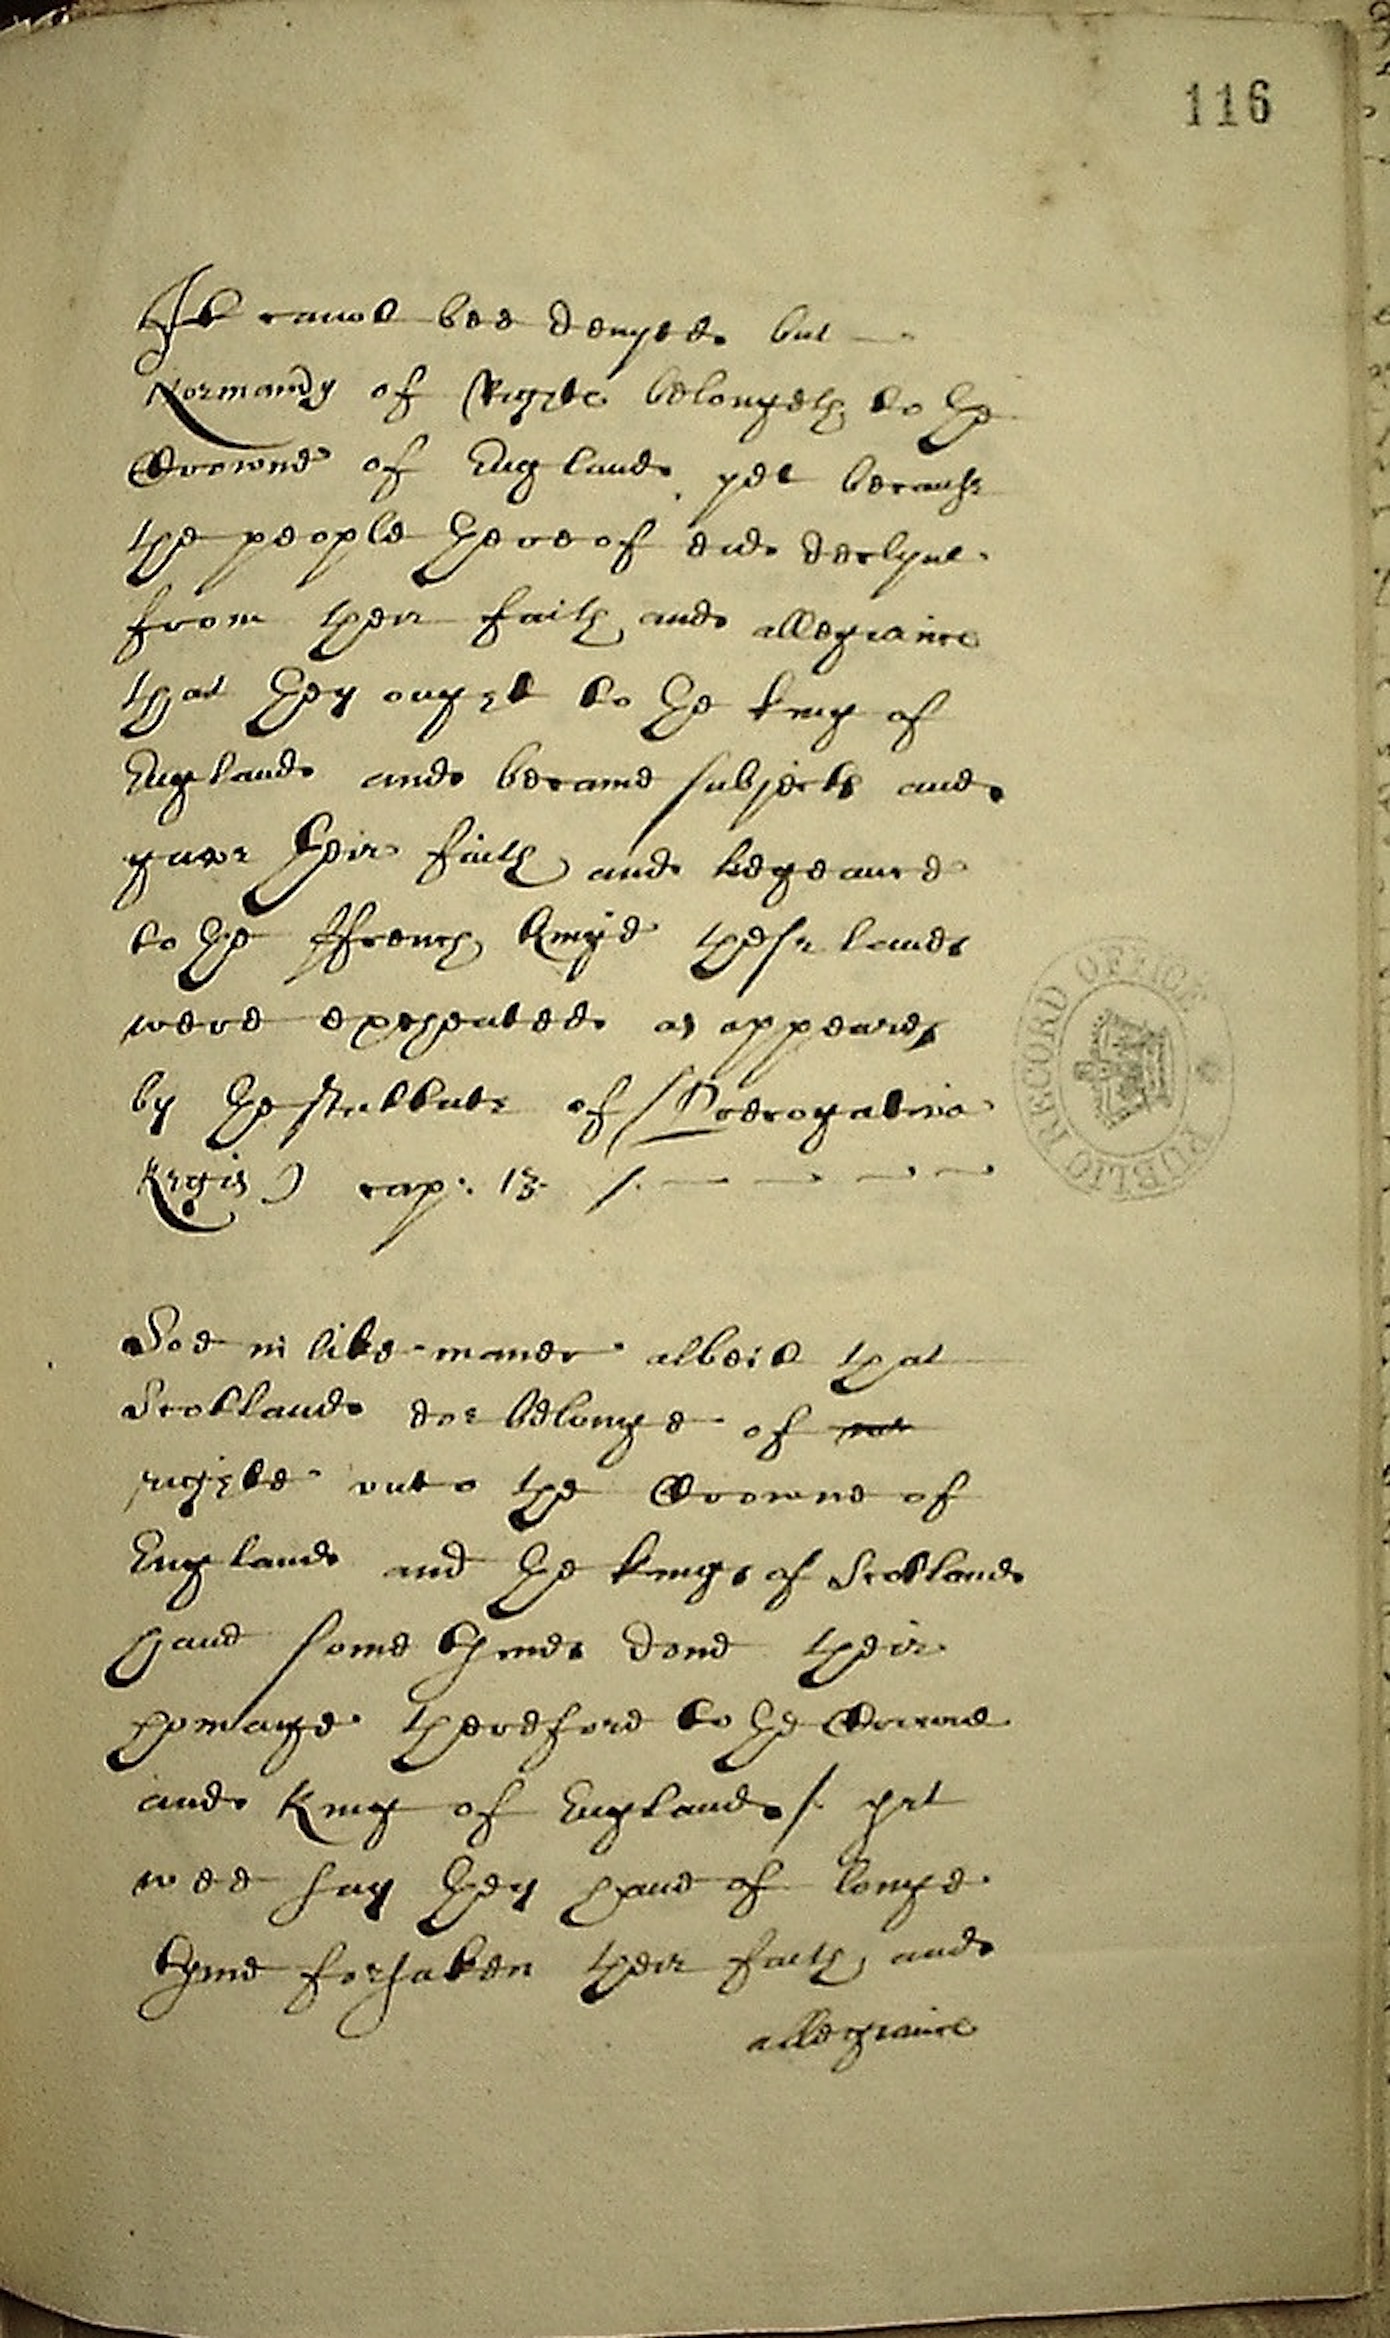 116
It canot bee denyed but
Normandy of Righte belongeth to the
Crowne of England yet because
the people thereof did declyne
from their faith and allegiance
that they ought to the king of
England and became subjects and
gave their faith and legeance
to the ffrench kinge these lands
were exscheated as appeares
by the stattute of Prerogativa
Regis) cap: 13 /.
Soe in like maner albeit that
Scottland doe belonge of
righte unto the Crowne of
England and the kings of Scottland
have some tymes done their
homage therefore to the Crowne
and King of England /. yet
wee say they have of longe
tyme forsaken their faith and
allegiance
PUBLIC RECORD OFFICE